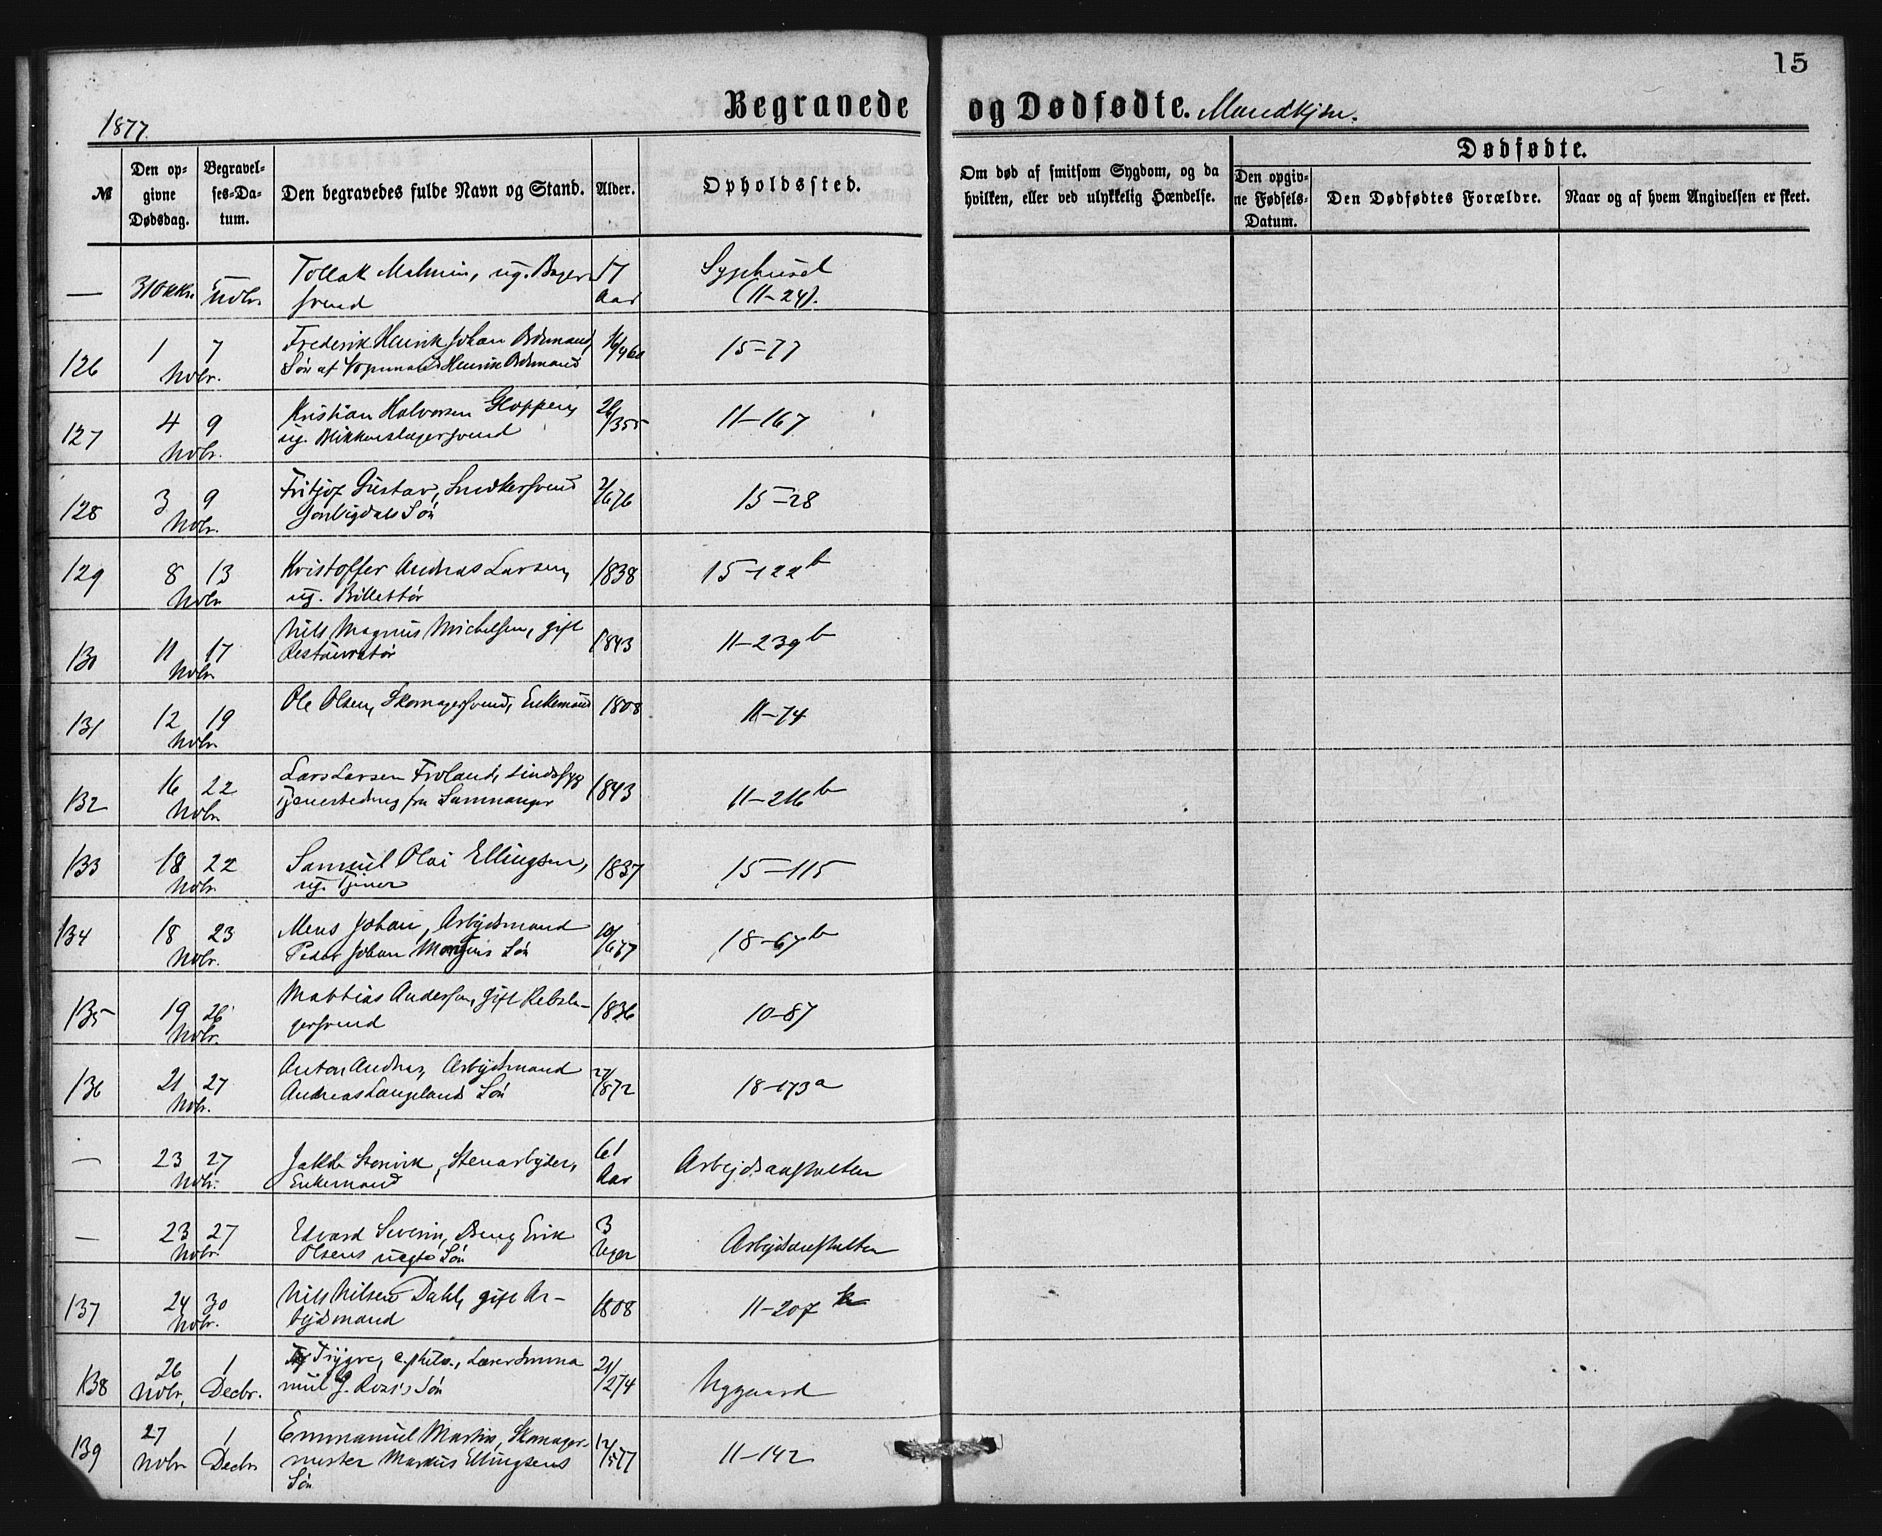 15
1877.
Begravede og Dødfødte. Mandkjøn.
№
Den op-
givne
Dødsdag.
Begravel-
ses-Da-
tum.
Den begravedes fulde Navn og Stand.
Alder.
Opholdssted.
Om død af smitsom Sygdom, og da
hvilken, eller ved ulykkelig Hændelse.
Dødfødte.
Den opgiv-
ne Fødsels-
Datum.
Den Dødfødtes Forældre.
Naar og af hvem Angivelsen er skeet.
— 31 Oktr. 5 Novbr. Tollak Malmin, ug. Bager- 17 Sygehuset
svend Aar (11-24).
126 1 7 Frederik Henrik Johan 15-77
Novbr. Søn af Henrik
127 4 9 Kristian Halvorsen Gloppen, 11-167
Novbr. ug. Blikkenslagersvend
128 3 9 Fritjof Gustav, Snedkersvend 2/6 76 15-28
Novbr. Søn
129 8 13 Kristoffer Andreas Larsen, 1838 15-122b
Novbr. ug. Billettør
130 11 17 Nils Magnus Michelsen, gift 1843 11-239b
Novbr. Restauratør
131 12 19 Ole Olsen, Skomagersvend, Enkemand 1808 11-74
Novbr.
132 16 22 Lars Larsen Froland, sindssyg 1843 11-216b
Novbr. fra Samnanger
133 18 22 Samuel Olai Ellingsen, 1837 15-115
Novbr. ug. Tjener
134 18 23 Mens Johan, Arbejdsmand 10/6 77 18-67b
Novbr. Peder Johan Søn
135 19 26 Mathias Andersen, gift Rebsla- 1836 10-87
Novbr. gersvend
136 21 27 Anton Andreas, Arbejdsmand 18-173a
Novbr. Andreas Langelands Søn
— 23 27 Jakob Stenvik, Stenarbejder, 61 Arbejdsanstalten
Novbr. Enkemand Aar
— 23 27 Edvard Severin, Erik 3 Arbejdsanstalten
Novbr. Olsens uægte Søn Uger
137 24 30 Nils Nilsen Dahl, gift Ar- 1808 11-207
Novbr. bejdsmand
138 26 1 Trygve, Lærer Imma 21/12 74 Nygaard
Novbr. Decbr. nuel J. Søn
139 27 1 Emmanuel Martin, Skomager- 12/5 77 11-142
Novbr Decbr mester Markus Ellingsens
Søn